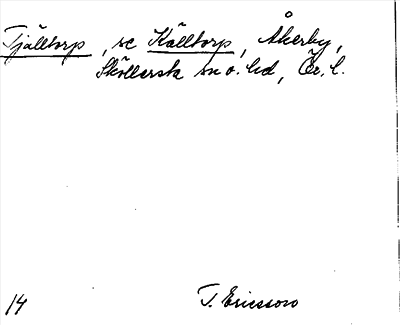 Tjälltorp, se Källtorp, Åkerby,
Sköllersta sn o. hd, Ör. l.
14 T. Ericsson